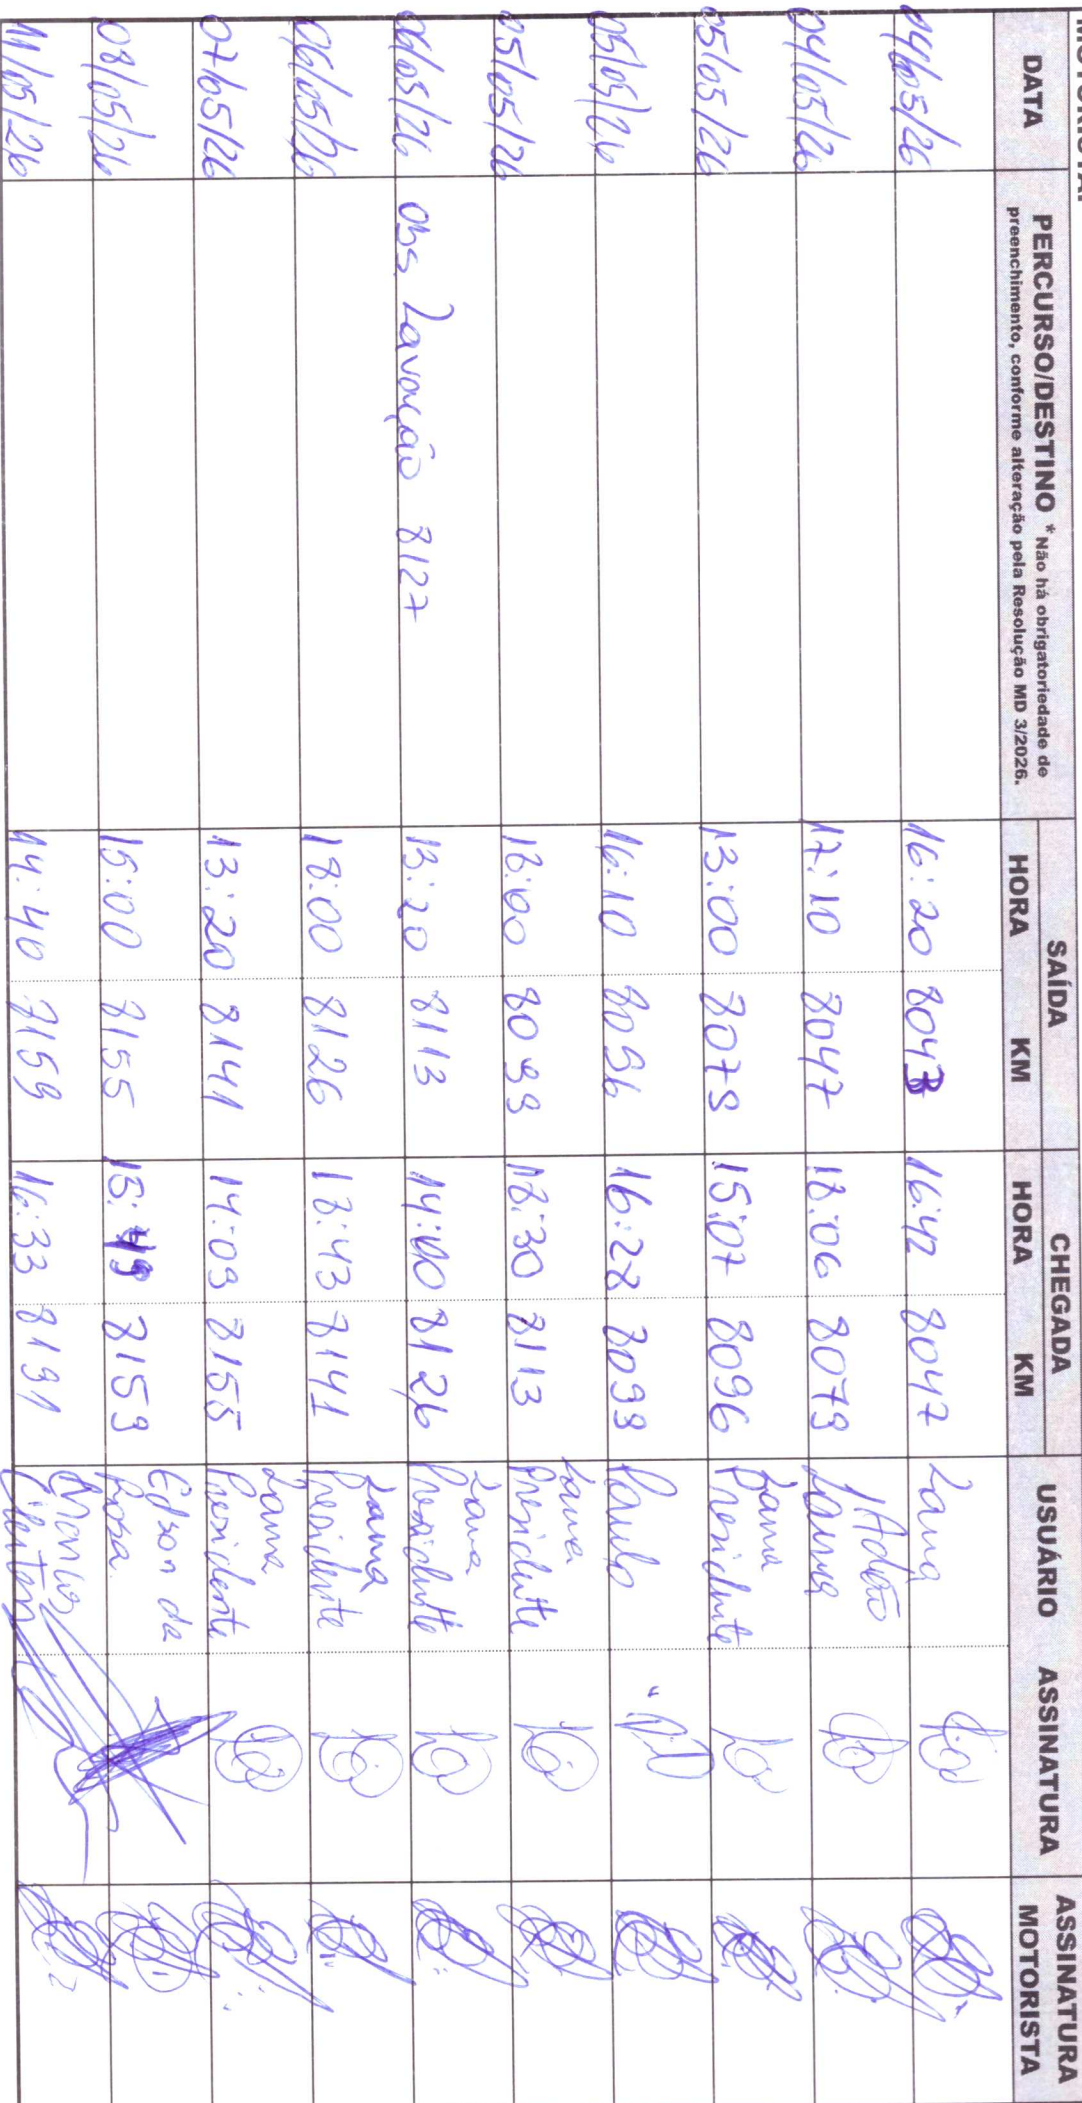 MOTORISTA:
DATA PERCURSO/DESTINO * Não há obrigatoriedade de preenchimento, conforme alteração pela Resolução MD 3/2026. SAÍDA HORA KM CHEGADA HORA KM USUÁRIO ASSINATURA ASSINATURA MOTORISTA
04/05/26 16:20 8043 16:42 8047 Lama
04/05/26 17:10 8047 18:06 8079 Lama
05/05/26 13:00 8079 15:07 8096 Lama Presidente
05/05/26 16:10 8096 16:28 8099 Paulo
05/05/26 18:00 8099 18:30 8113 Lama Presidente
06/05/26 obs Lavação 8127 13:20 8113 14:00 8126 Lama Presidente
06/05/26 18:00 8126 18:43 8141 Lama Presidente
07/05/26 13:20 8141 14:09 8155 Lama Presidente
08/05/26 15:00 8155 15:49 8159 Edson da Rosa
11/05/26 14:40 8159 16:33 8191